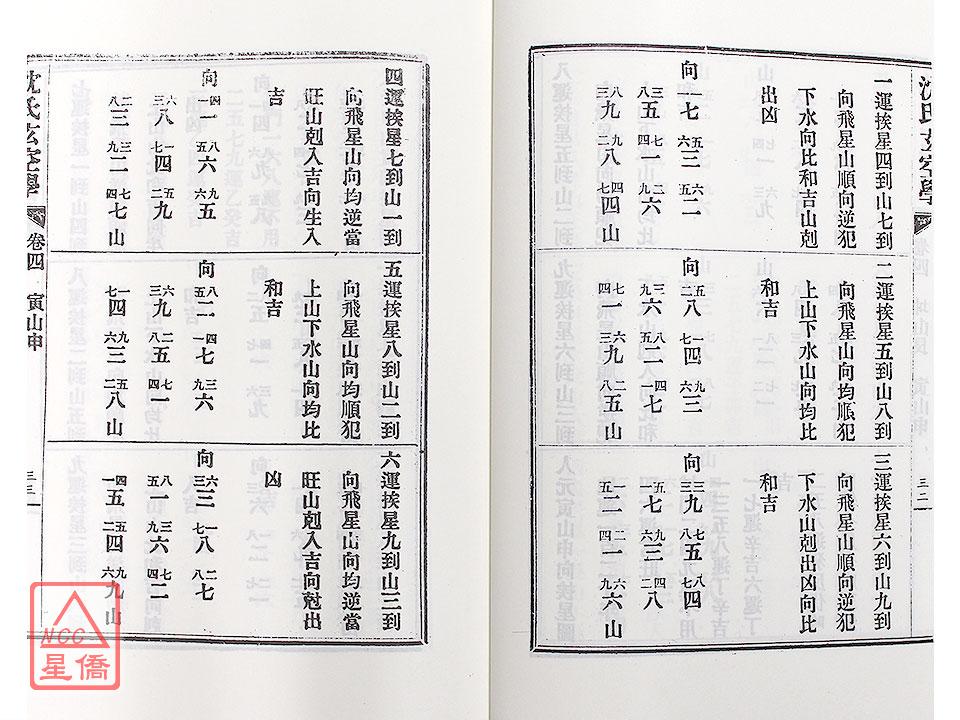 沈氏玄空學
三二
一運挨星四到山七到
向飛星山順向逆犯
下水向比和吉山剋
出凶
向 一一七 六五三 五六二
八三五 四七一 九二六
三八九 二九八 七四四 山
二運挨星五到山八到
向飛星山向均順犯
上山下水山向均比
和吉
向 二五八 七一四 六九三
九三六 五八二 一四七
四七一 三六九 八二五 山
三運挨星六到山九到
向飛星山順向逆犯
下水山剋出凶向比
和吉
向 三三九 八七五 七八四
一五七 六九三 二四八
五一二 四二一 九六六 山
四運挨星七到山一到
向飛星山向均逆當
旺山剋入吉向生入
吉
向 一四一 五八六 六九五
三六八 七一四 二五九
八二三 九三二 四七七 山
五運挨星八到山二到
向飛星山向均順犯
上山下水山向均比
和吉
向 五八二 一四七 九三六
三六九 八二五 四七一
七一四 六九三 二五八 山
六運挨星九到山三到
向飛星山向均逆當
旺山剋入吉向尅出
凶
向 三六三 七一八 八二七
五八一 九三六 四七二
一四五 二五四 六九九 山
沈氏玄空學
卷四 寅山申
三三
NCC
星僑